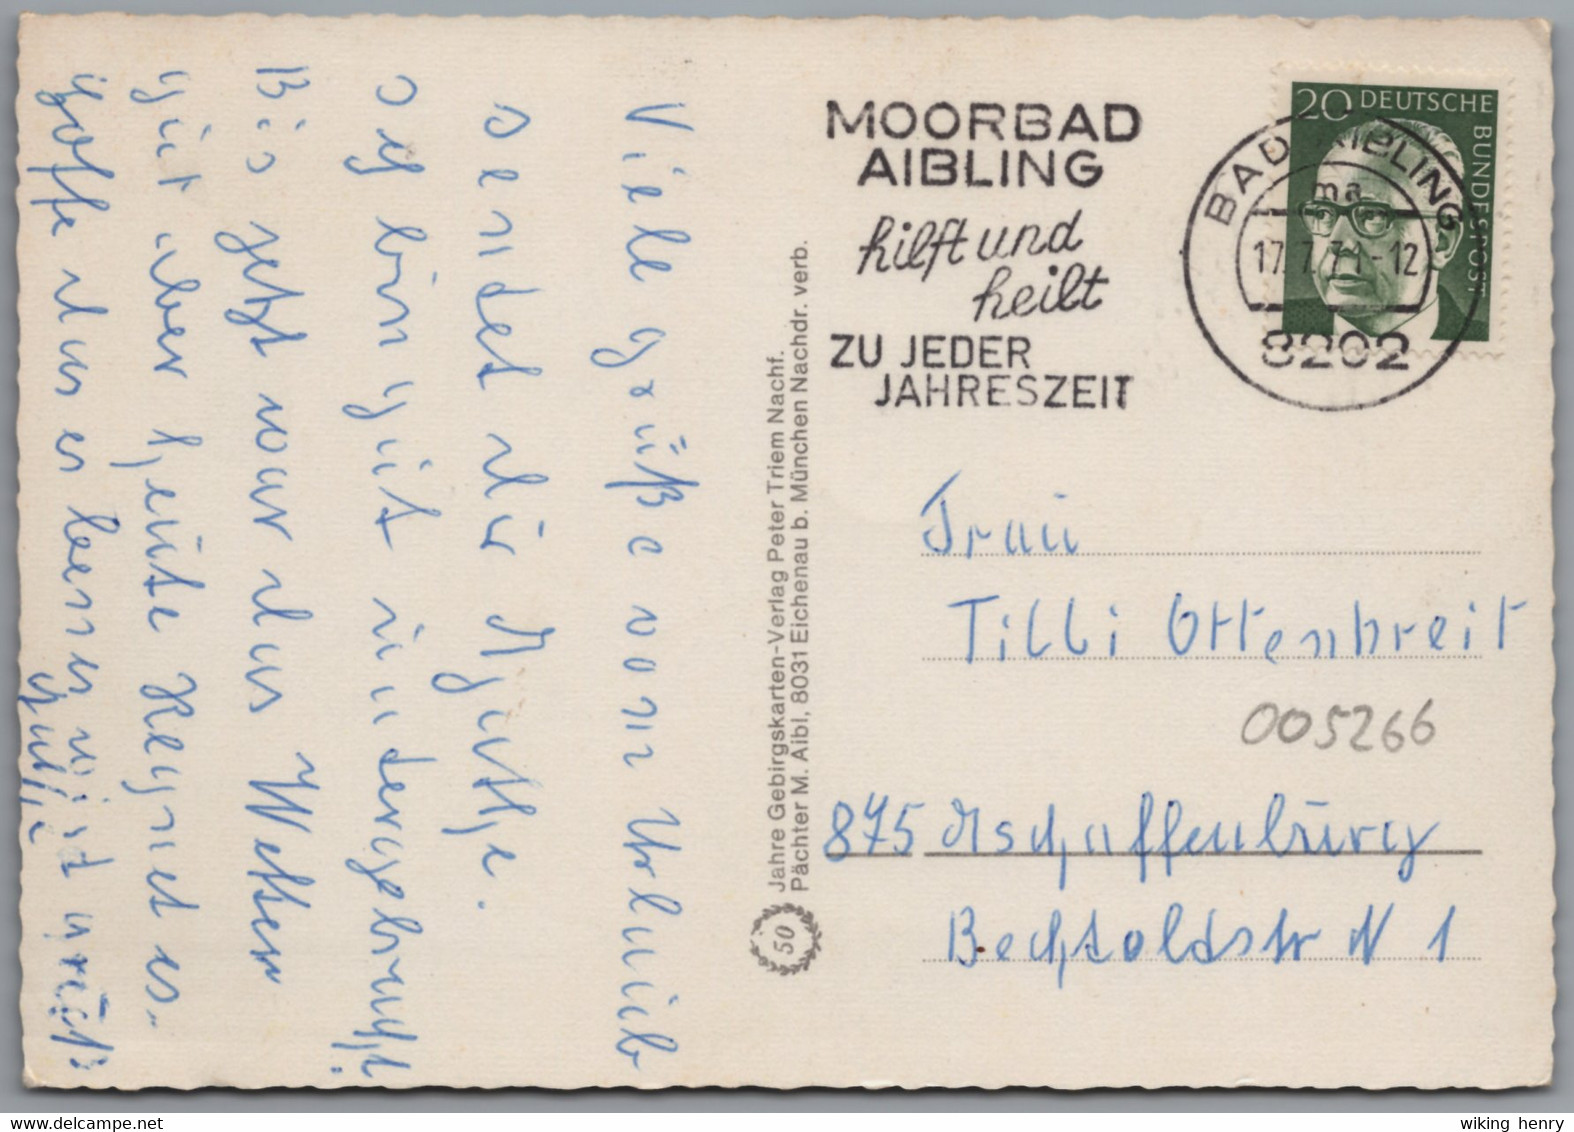 Viele Grüße vom Urlaub
sendet dir Agathe.
Ich bin gut untergebracht.
Bis jetzt war das Wetter
gut aber heute Regnet es.
Hoffe das es besser wird
Grüß
MOORBAD
AIBLING
hilft und
heilt
ZU JEDER
JAHRESZEIT
BAD AIBLING
ma
17.7.71-12
8202
20 DEUTSCHE
BUNDESPOST
50 Jahre Gebirgskarten-Verlag Peter Triem Nachf.
Pächter M. Aibl, 8031 Eichenau b. München Nachdr. verb.
Frau
Tilli Ottenbreit
005266
875 Aschaffenburg
Bechtoldstr N 1
wiking henry